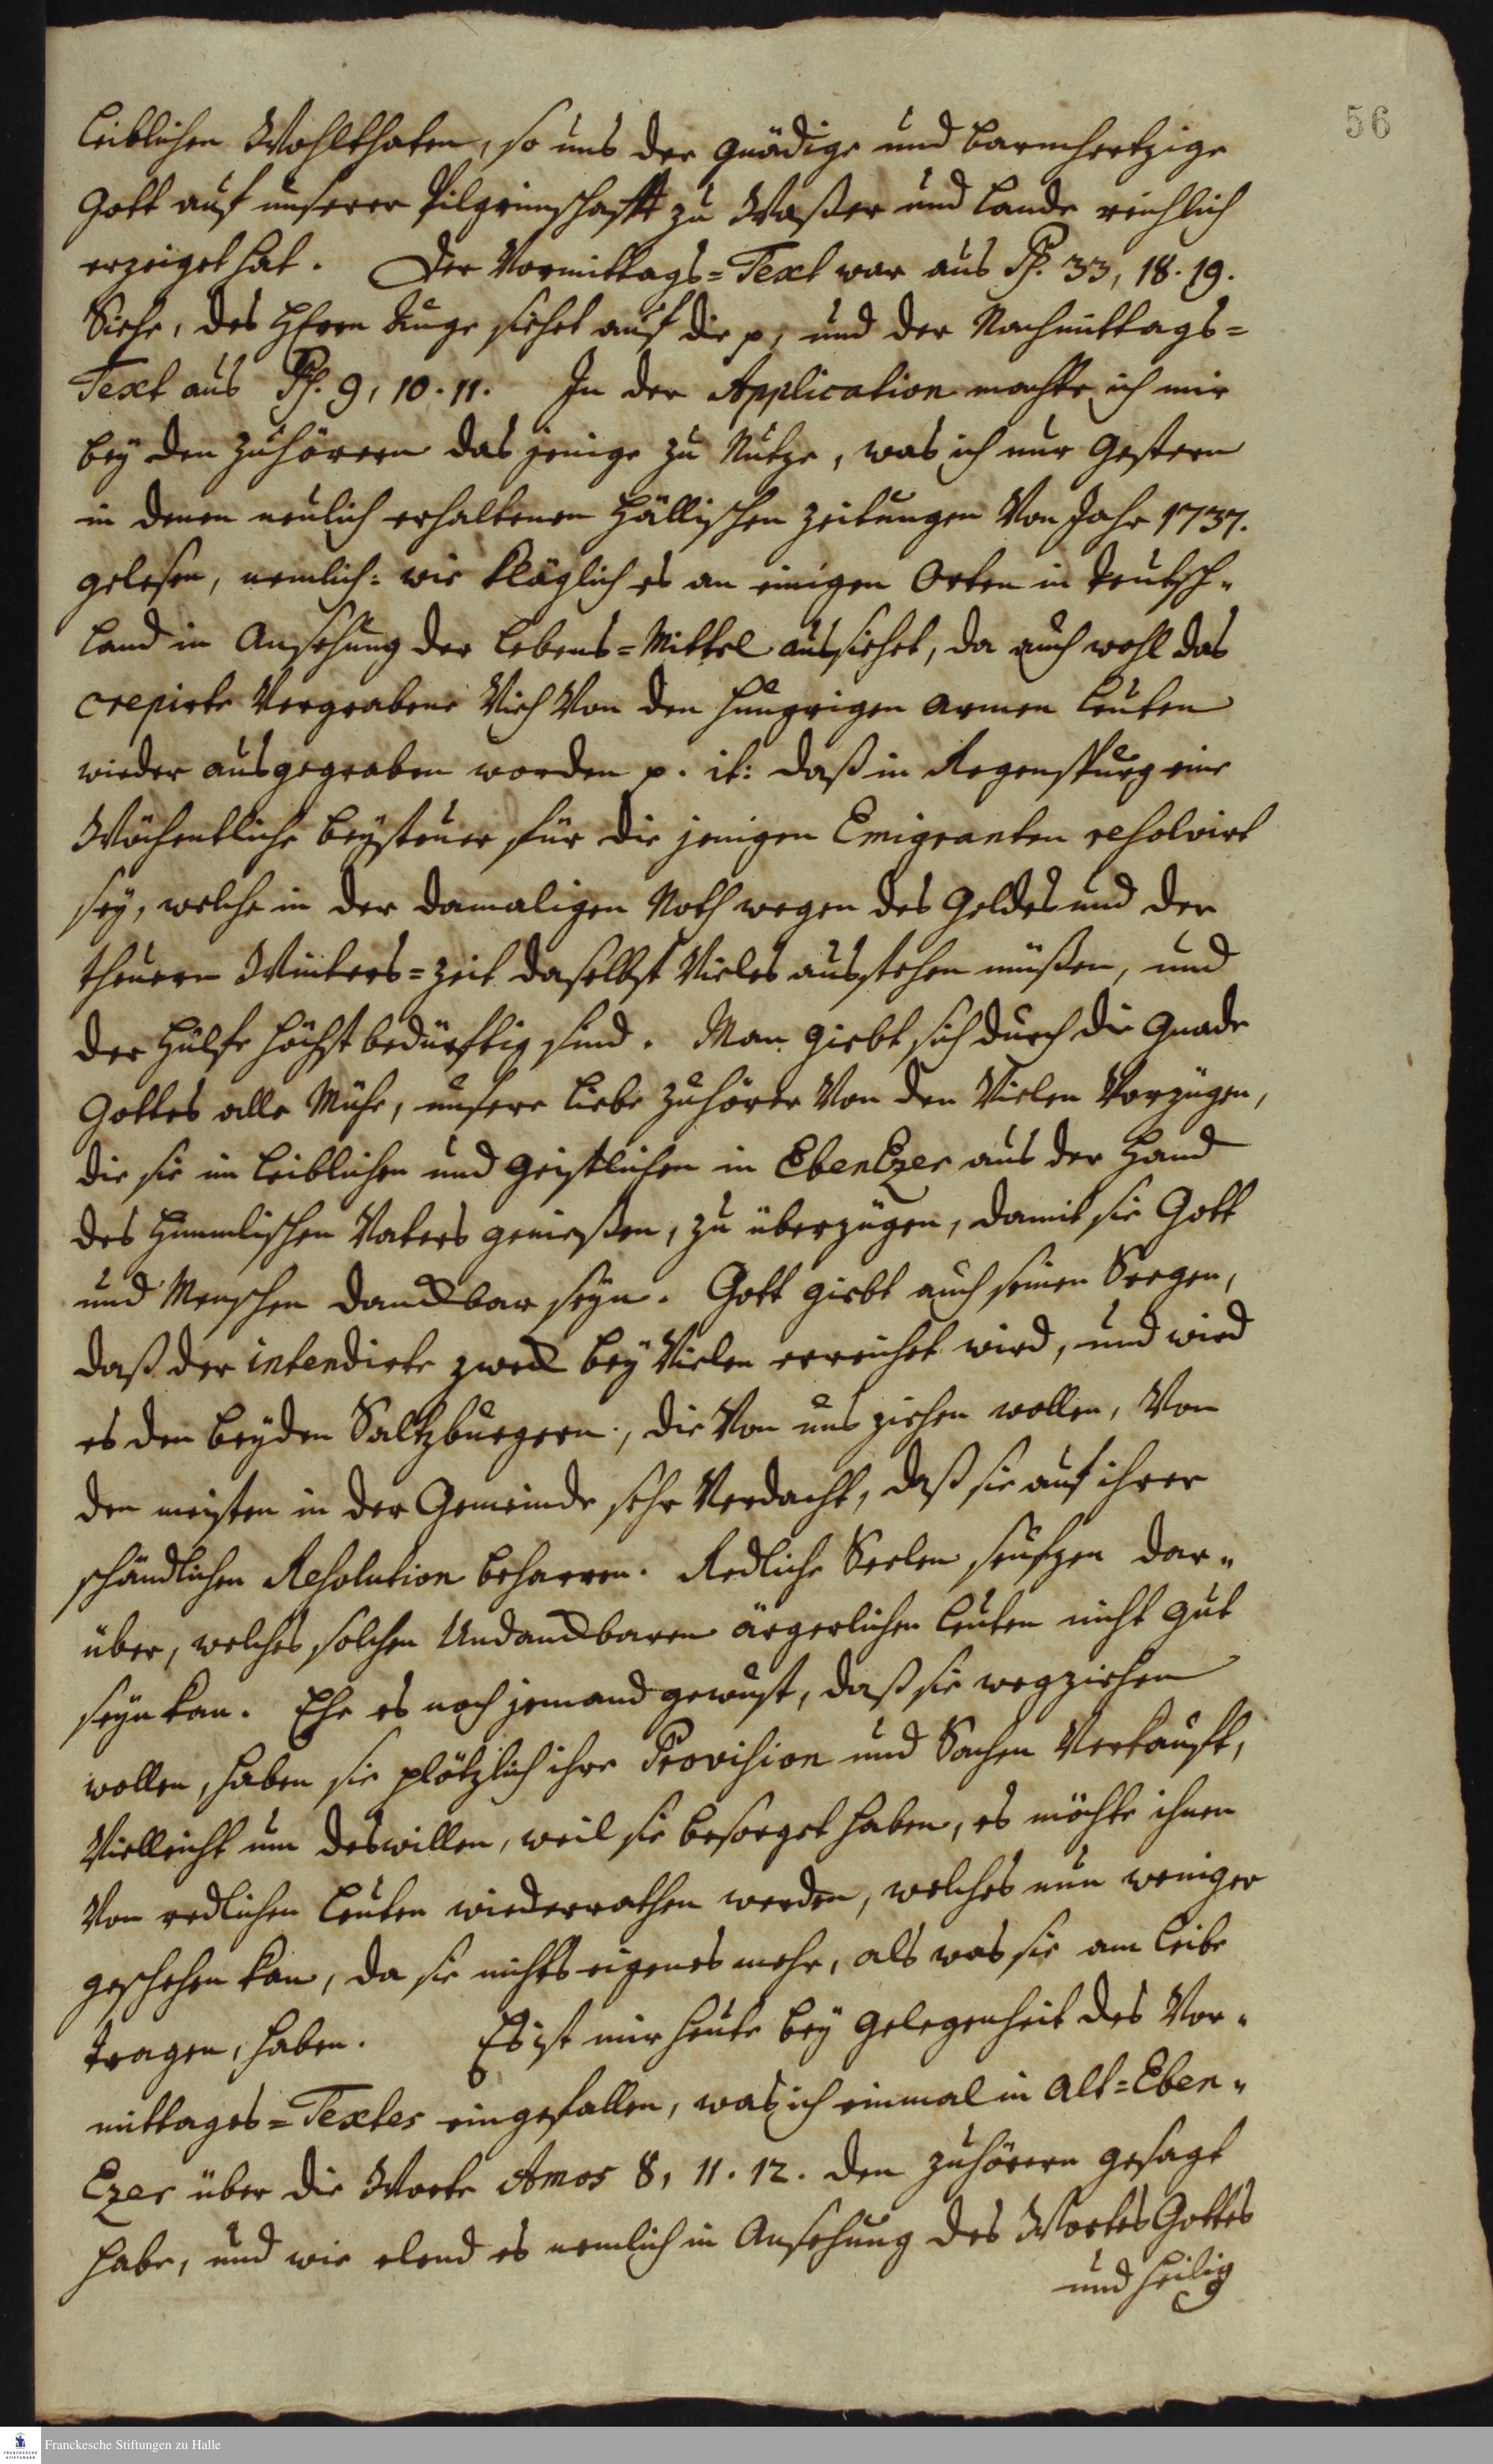 56
leiblichen Wohlthaten, so uns der gnädige und barmhertzige
Gott auf unserer Pilgrimschafft zu Waßer und Lande reichlich
erzeiget hat. Der Vormittags=Text war aus Ps. 33, 18. 19.
Siehe, des HErrn Auge siehet auf die p, und der Nachmittags=
Text aus Ps. 9, 10. 11. In der Application machte ich mir
bey den Zuhörern das jenige zu Nutze, was ich nur gestern
in denen neulich erhaltenen Hällischen Zeitungen von Jahr 1737.
gelesen, nemlich: wie kläglich es an einigen Orten in Teutsch„
land in Ansehung der Lebens=Mittel aussiehet, da auch wohl das
crepirte vergrabene Vieh von den hungrigen armen Leuten
wieder ausgegraben worden p. it: daß in Regenspurg eine
Wöchentliche Beysteuer für die jenigen Emigranten resolvirt
sey, welche in der damaligen Noth wegen des Geldes und der
theuern Winters=Zeit daselbst vieles ausstehen müßen, und
der Hülfe höchst bedürftig sind. Man giebt sich durch die Gnade
Gottes alle Mühe, unsere liebe Zuhörer von den vielen Vorzügen,
die sie im leiblichen und geistlichen in EbenEzer aus der Hand
des himmlischen Vaters genießen, zu überzügen, damit sie Gott
und Menschen danckbar seyn. Gott giebt auch seinen Seegen,
daß der intendirte Zweck bey vielen erreichet wird, und wird
es den beyden Saltzburgern, die von uns ziehen wollen, von
den meisten in der Gemeinde sehr verdacht, daß sie auf ihrer
schändlichen Resolution beharren. Redliche Seelen seufzen dar„
über, welches solchen undanckbaren ärgerlichen Leuten nicht gut
seyn kan. Ehe es noch jemand gewust, daß sie wegziehen
wollen, haben sie plötzlich ihre Provision und Sachen verkauft,
vielleicht um deswillen, weil sie besorget haben, es möchte ihnen
von redlichen Leuten wiederrathen werden, welches nun weniger
geschehen kan, da sie nichts eigenes mehr, als was sie am Leibe
tragen, haben. Es ist mir heute bey Gelegenheit des Vor„
mittages=Textes eingefallen, was ich einmal in Alt=Eben„
Ezer über die Worte Amos 8, 11. 12. den Zuhörern gesagt
habe, und wie elend es nemlich in Ansehung des Wortes Gottes
und heilig
Franckesche Stiftungen zu Halle